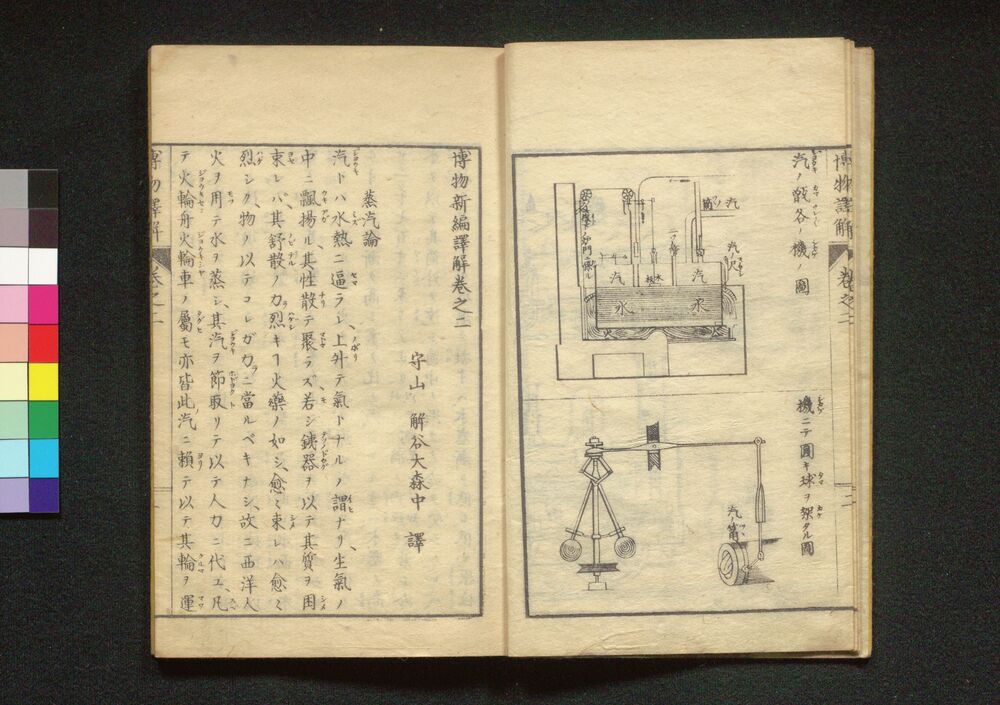 博物譯解
卷之二
汽ノ甑各ノ機ノ圖
汽
筒
汽ノ尺
汽
汽
水
水
機ニテ圓キ球ヲ架タル圖
汽ノ筩
博物新編譯解卷之二
守山 解谷大森中 譯
蒸汽論
汽トハ水熱ニ逼ラレ上升テ氣トナルノ謂ナリ、生氣ノ
中ニ飄揚ル、其性散テ聚ラズ、若シ鐵器ヲ以テ其質ヲ困
束レバ、其舒散ノ力烈キヿ火藥ノ如シ、愈ミ束レハ愈ミ
烈シク、物ノ以テコレガ力ニ當ルベキナシ、故ニ西洋人
火ヲ用テ水ヲ蒸シ、其汽ヲ節取リテ以テ人力ニ代ユ、凡
テ火輪舟火輪車ノ屬モ亦皆此汽ニ頼テ以テ其輪ヲ運
博物譯解
卷之二